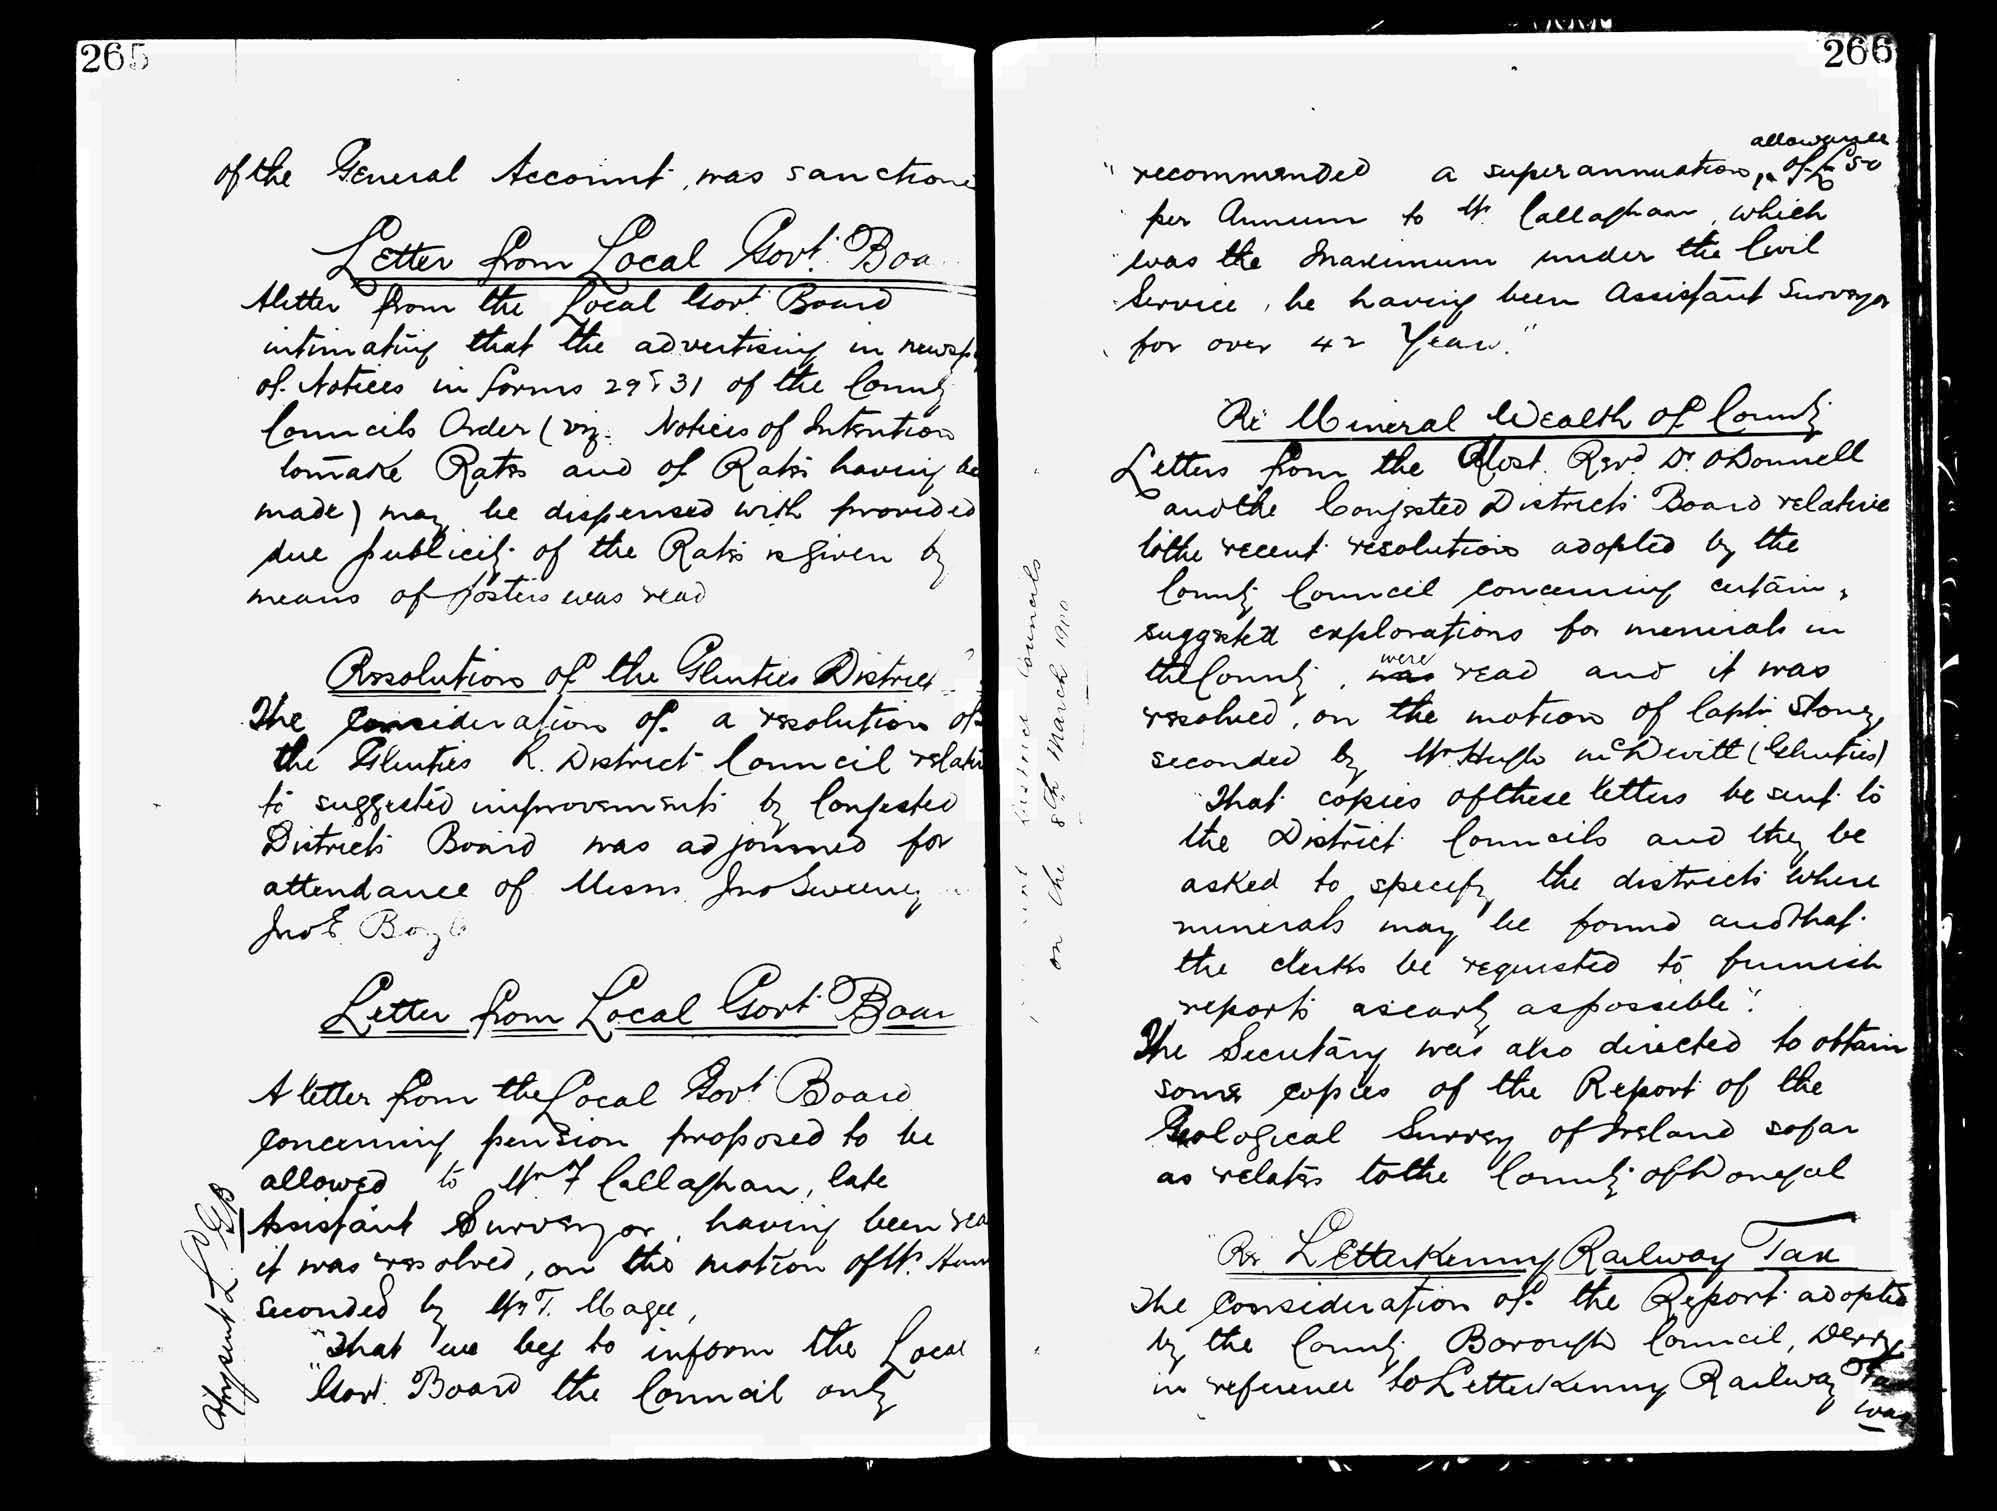 265
of the General Account, was sanctione
Letter from Local Govt. Boa
A letter from the Local Govt. Board
intimating that the advertising in newsp
of Notices in forms 29 & 31 of the County
Councils Order (viz. Notices of Intention
to make Rates and of Rates having be
made) may be dispensed with provided
due publicity of the Rates is given by
means of posters was read
Resolution of the Glenties District
The consideration of a resolution of
the Glenties R. District Council relati
to suggested improvements by Congested
Districts Board was adjourned for
attendance of Messrs. Jno Sweeney
Jno E. Boyle
Letter from Local Govt. Boar
A letter from the Local Govt. Board
concerning pension proposed to be
allowed to Mr F Callaghan, late
Assistant Surveyor, having been rea
it was resolved, on the motion of Mr.
seconded by Mr T. Magee,
"That we beg to inform the Local
"Govt. Board the Council only
Copy sent L G B
266
allowance
"recommended a superannuation of £50
per Annum to Mr. Callaghan, which
was the Maximum under the Civil
Service, he having been Assistant Surveyor
for over 42 Years."
Re Mineral Wealth of County
Letters from the Most Revd. Dr. O'Donnell
and the Congested Districts Board relative
to the recent resolution adopted by the
County Council concerning certain
suggested explorations for minerals in
were
the County, was read and it was
resolved, on the motion of Captn Stoney
seconded by Mr. Hugh McDevitt (Glenties)
"That copies of these letters be sent to
the District Councils and they be
asked to specify the districts where
minerals may be found and that
the clerks be requested to furnish
reports as early as possible".
The Secretary was also directed to obtain
some copies of the Report of the
Geological Survey of Ireland so far
as relates to the County of Donegal
Re Letterkenny Railway Tax
The consideration of the Report adopted
by the County Borough Council, Derry
in reference to Letterkenny Railway Tax
was
District Councils
on the 8th March 1900